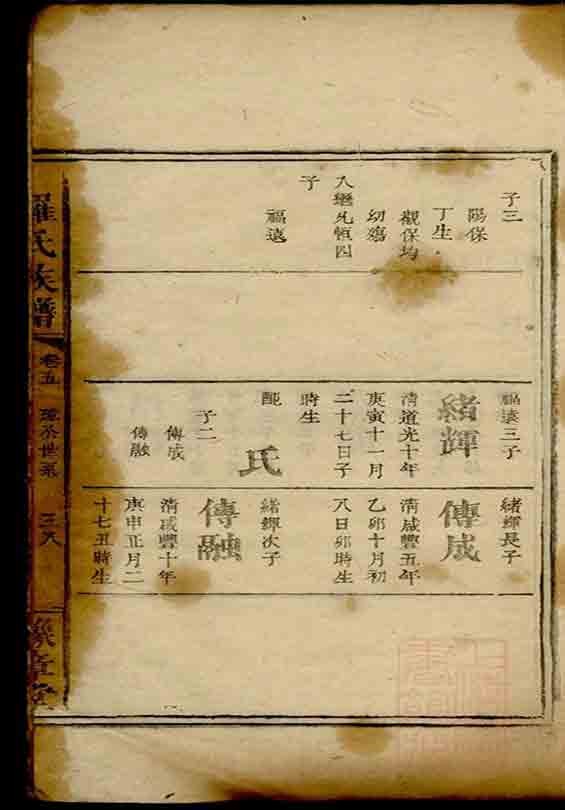 子三
陽保
丁生
觀保均
幼殤
入繼兄恒四
子
福遠
福遠三子
緒輝
清道光十年
庚寅十一月
二十七日子
時生
配
氏
子二
傳成
傳融
緒輝長子
傳成
清咸豐五年
乙卯十月初
八日卯時生
緒輝次子
傳融
清咸豐十年
庚申正月二
十七丑時生
羅氏族譜
卷五
世系
豫章堂